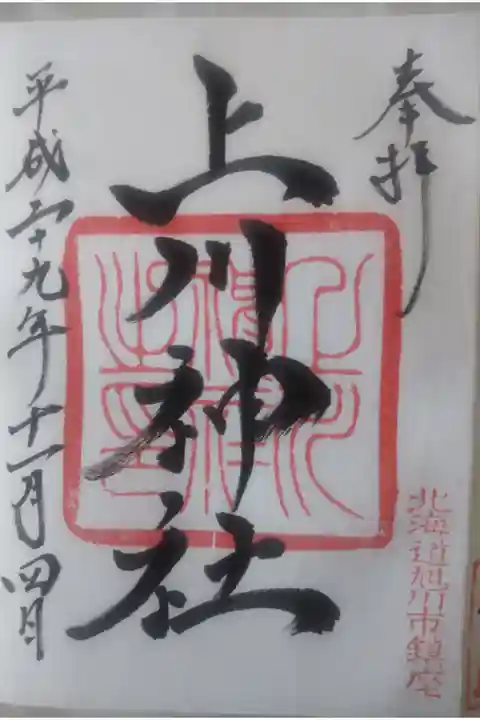 奉拝
上川神社
北海道旭川市鎮座
平成二十九年十一月四日